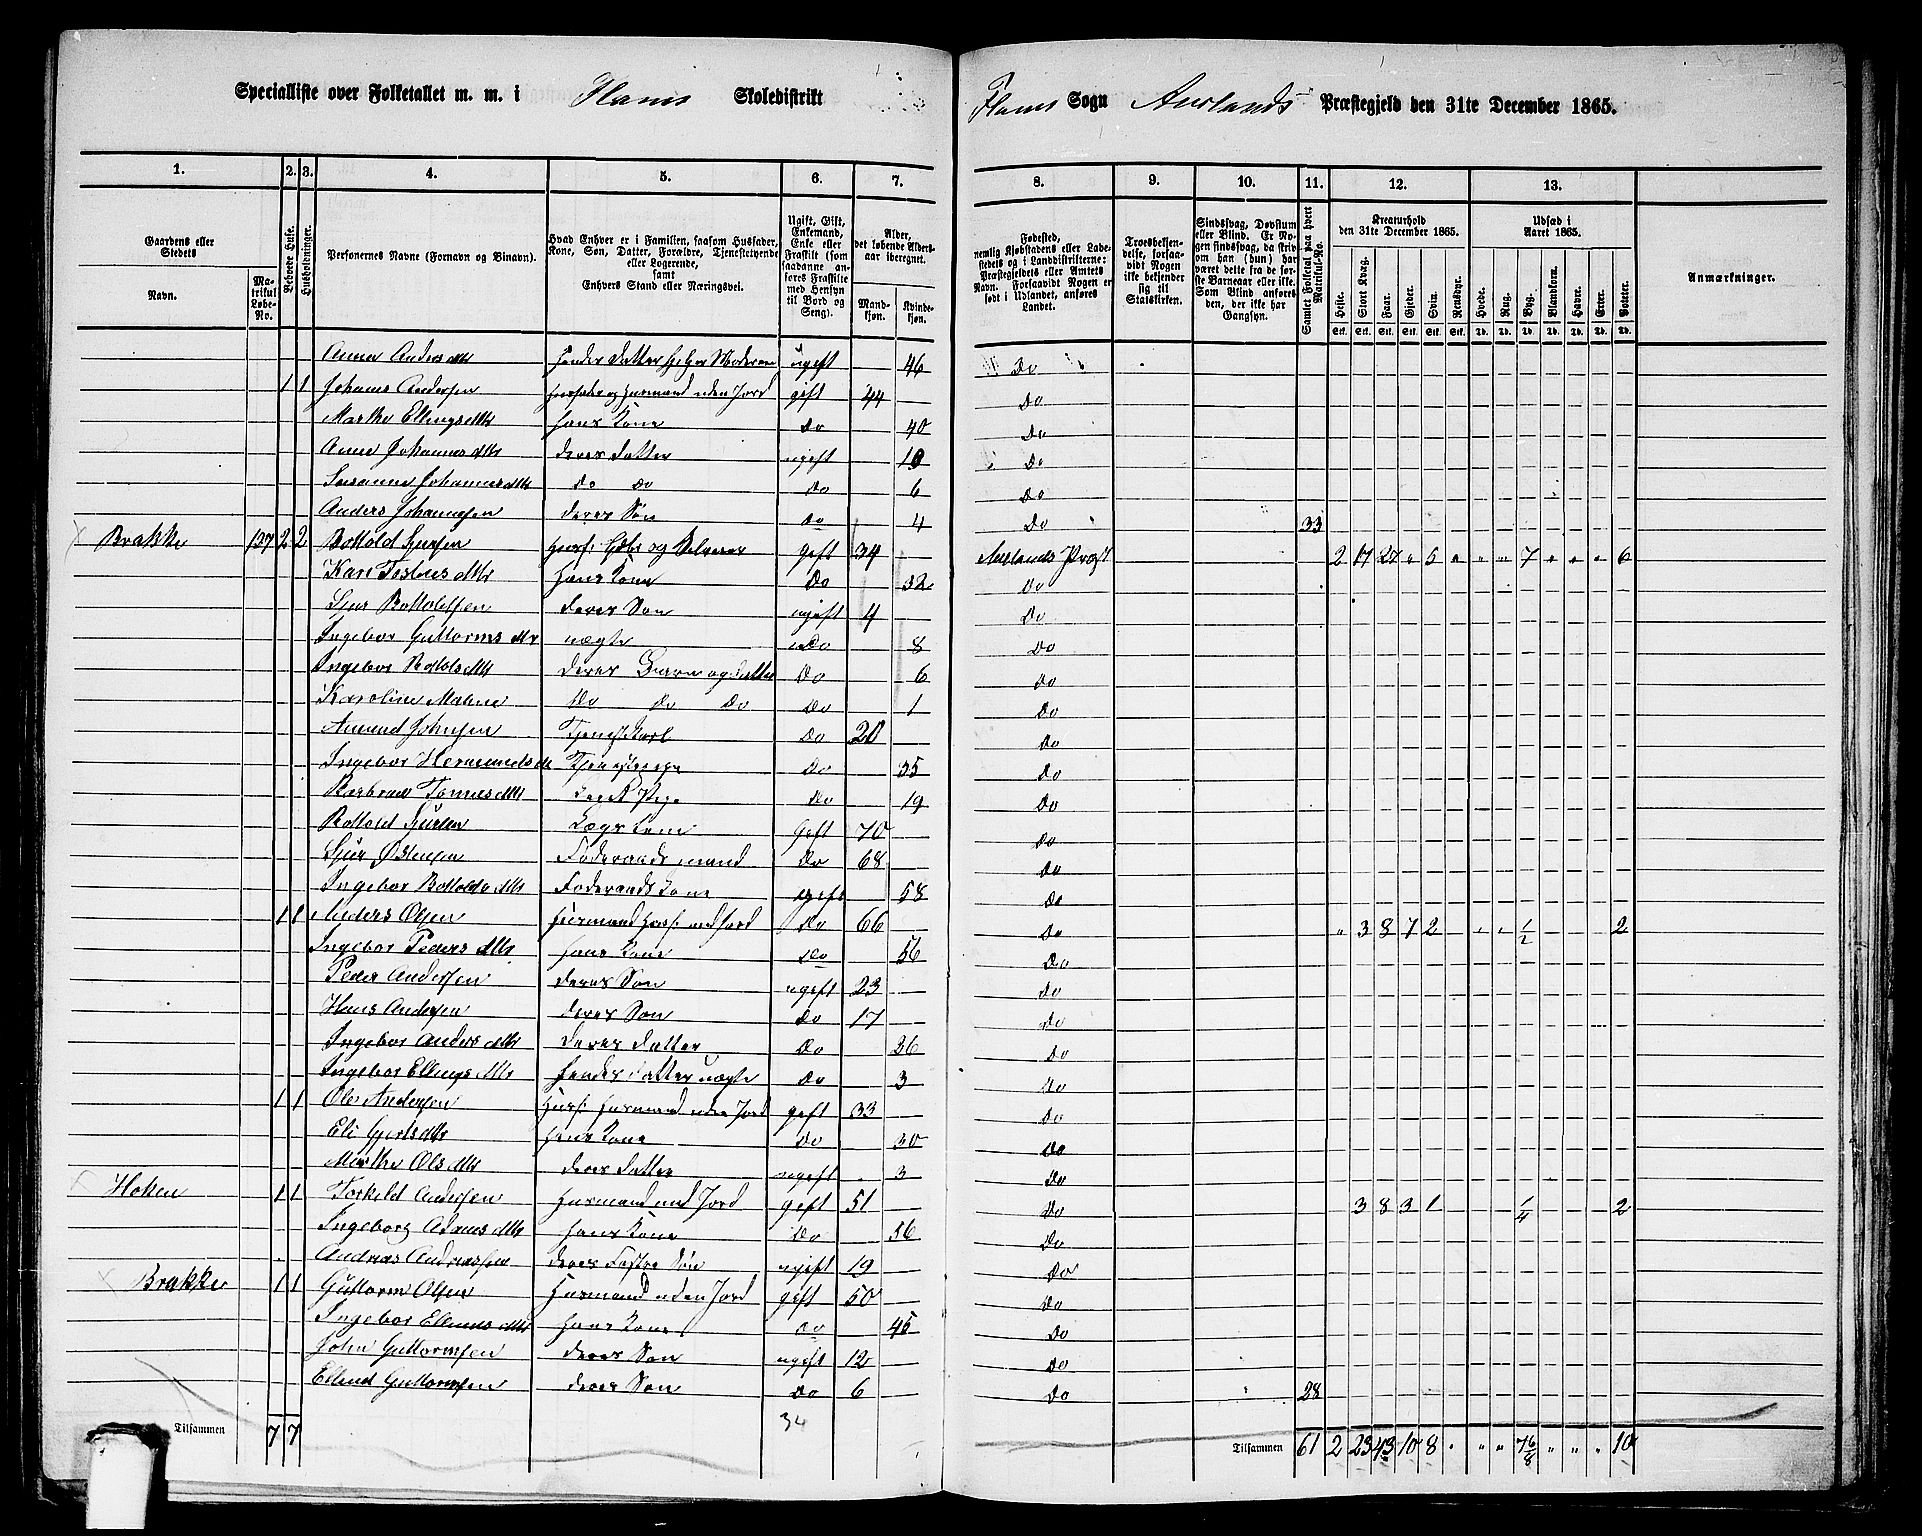 Specialliste over Folketallet m. m. i Flams Skoledistrikt
Flams Sogn Aurlands Præstegjeld den 31te December 1865.
1. 2. 3. 4. 5. 6. 7. 8. 9. 10. 11. 12. 13.
Gaardens eller Stedets
Navn.
Matrikul Løbe-No.
Beboede Huse.
Husholdninger.
Personernes Navne (Fornavn og Binavn).
Hvad Enhver er i Familien, saasom Husfader, Kone, Søn, Datter, Forældre, Tjenestetyende eller Logerende, samt Enhvers Stand eller Næringsvei.
Ugift, Gift, Enkemand, Enke eller Fraskilt (som saadanne anføres Fraskilte med Hensyn til Bord og Seng).
Alder, det løbende Alders-aar iberegnet.
Mandkjøn. Kvindekjøn.
Fødested, nemlig Kjøbstadens eller Ladestedets eller i Landdistrikterne: Præstegjeldets eller Amtets Navn. Forsaavidt Nogen er født i Udlandet, anføres Landet.
Troesbekjendelse, forsaavidt Nogen ikke bekjender sig til Statskirken.
Sindssvag, Døvstum eller Blind. Er Nogen sindssvag, da skrives om han (hun) har været dette fra de første Barneaar eller ikke. Som Blind anføres den, der ikke har Gangsyn.
Samlet Folketal paa hvert Matrikul-No.
Kreaturhold den 31te December 1865.
Heste. Stort Kvæg. Faar. Gjeder. Svin. Rensdyr.
Udsæd i Aaret 1865.
Hvede. Rug. Byg. Blandkorn. Havre. Erter. Poteter.
Anmærkninger.
Anna Andersdtr ugift 46 Do
1 1 Johans Andersen Husfader og Husmand uden Jord gift 44 Do
Marthe Ellingsdtr hans Kone Do 40 Do
Anna Johannesdtr deres Datter ugift 10 Do
Susanne Johannesdtr do do Do 6 Do
Anders Johannesen deres Søn Do 4 Do 33
Brække 137 2 2 Bottold Sjursen Husf. Gbr og Selveier gift 34 Aurlands Præst 2 17 27 " 5 " " " 7 " " " 6
Kari hans Kone Do 32 Do
Sjur Bottoldsen deres Søn ugift 4 Do
Ingebor Guttormsdtr uægte Do 8 Do
Ingebor Bottolsdtr deres Do 6 Do
Karoline Malene Do Do Do Do 1 Do
Amund Johnsen Tjenestekarl Do 20 Do
Ingebor Tjenestepige Do 35 Do
Barbrae Tomesdtr Pige Do 19 Do
Bottold Sjursen Lægs Lem Gift 70 Do
Sjur Østensen Føderaadsmand Do 68 Do
Ingebor Bottoldsdtr Føderaadskone gift 58 Do
1 1 Anders Olsen Husmand Husf. med Jord Do 66 Do " 3 8 7 2 " " 1/2 2
Ingebor Pedersdtr hans Kone Do 56 Do
Peder Andersen deres Søn ugift 23 Do
Hans Andersen deres Søn Do 17 Do
Ingebor Andersdtr deres Datter Do 26 Do
Ingebor Ellingsdtr hendes Datter uægte Do 3 Do
1 1 Ole Andersen Husf. Husmand uden Jord gift 33 Do
Eli Gjertsdtr hans Kone Do 30 Do
Marthe Olsdtr deres Datter ugift 3 Do
Hoken 1 1 Torkeld Andersen Husmand med Jord gift 51 Do 3 8 3 1 1/4 2
Ingeborg hans Kone Do 56 Do
Andreas Andreassen deres Foster Søn ugift 19 Do
Brække 1 1 Guttorm Olsen Husmand uden Jord gift 50 Do
Ingebor hans Kone Do 45 Do
John Guttormsen deres Søn ugift 12 Do
Ellend Guttormsen deres Søn Do 6 Do 28
34
Tilsammen 7 7
Tilsammen 61 2 23 43 10 8 " " " 7 6/8 " " " 10